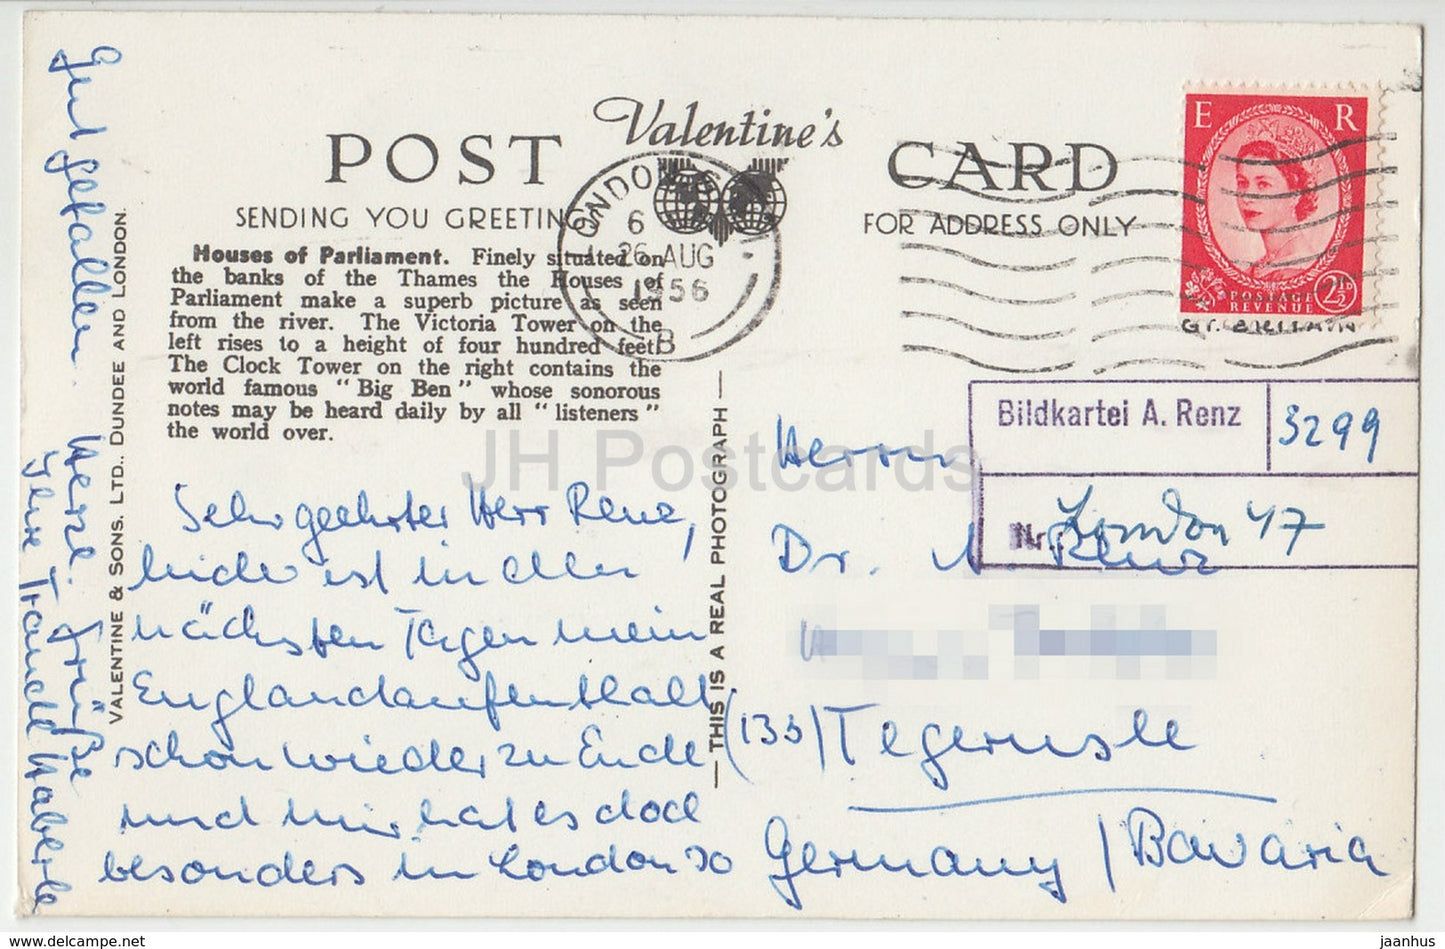 Valentine's
POST CARD
SENDING YOU GREETINGS
FOR ADDRESS ONLY
Houses of Parliament. Finely situated on
the banks of the Thames the Houses of
Parliament make a superb picture as seen
from the river. The Victoria Tower on the
left rises to a height of four hundred feet.
The Clock Tower on the right contains the
world famous "Big Ben" whose sonorous
notes may be heard daily by all "listeners"
the world over.
LONDON
6
26 AUG
1956
B
E R
POSTAGE
REVENUE
2½D
GT. BRITAIN
Bildkartei A. Renz 3299
Nr. London 47
Sehr geehrter Herr Renz,
leider ist in den
nächsten Tagen mein
Englandaufenthalt
schon wieder zu Ende
und mir hat es doch
besonders in London so
gut gefallen.
Herzl. Grüße
Ihre Traudl Haberle
Herrn
Dr. A. Renz
(13b) Tegernsee
Germany / Bavaria
VALENTINE & SONS. LTD., DUNDEE AND LONDON.
— THIS IS A REAL PHOTOGRAPH —
JH Postcards
www.delcampe.net
jaanhus